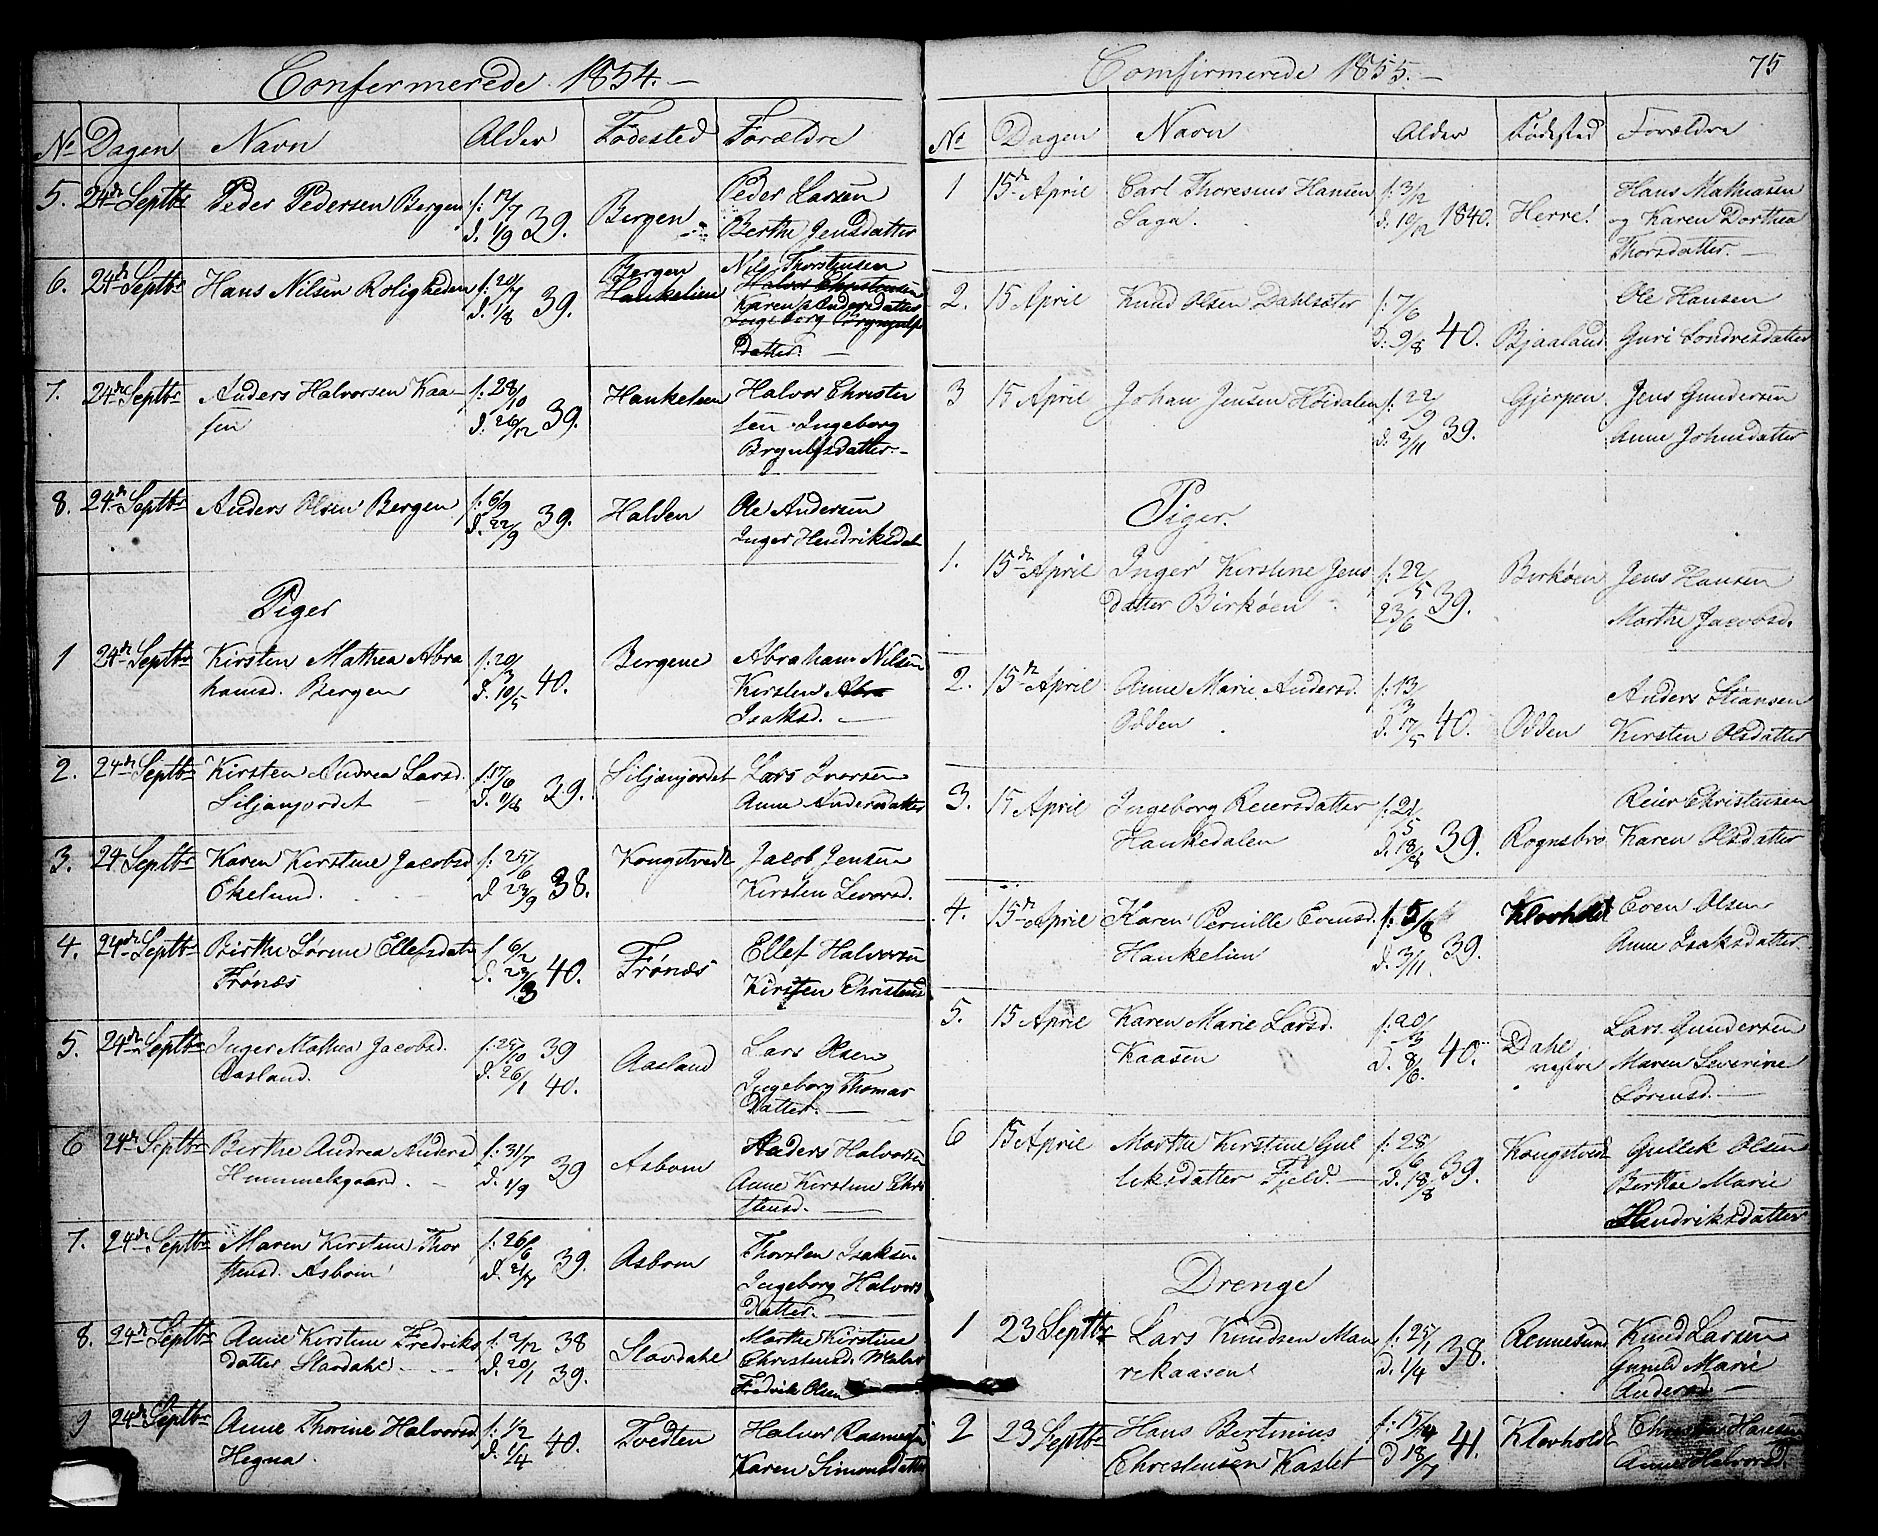 Confermerede 1854.—
No Dagen Navn Alder Fødested Forældre
5. 24de Septbr Peder Pedersen Bergen f. 12/7 Bergen Peder Larsen
d. 1/9 39. Berthe Jensdatter
6. 24de Septbr Hans Nilsen Roligheden f. 20/7 Bergen Nils Thorstensen
d. 1/8 39. Hankelien Halvor Christensen
Karen Andersdatter
Ingeborg Brynjulfs
Datter. —
7. 24de Septbr Anders Halvorsen Kaa- f. 28/10 Hankelien Halvor Christen
sen d. 26/12 39. sen Ingeborg
Brynulfsdatter.-
8. 24de Septbr Anders Olsen Bergen f. 6/9 Halden Ole Andersen
d. 22/9 39. Inger Hendriksdat
Piger
1 24de Septbr Kirsten Mathea Abra f. 20/3 Bergene Abraham Nilsen
hamsd. Bergen d. 10/5 40. Kirsten Abra
Isaksd. —
2. 24de Septbr Kirsten Andrea Larsd. f. 17/6 Siljanjordet Lars Iversen
Siljanjordet d. 1/8 39. Anne Andersdatter
3. 24 Septbr Karen Kirstine Jacobsd f. 25/6 Kongstvedt Jacob Jensen
Ekelund. d. 23/9 38. Kirsten Levorsd.
4. 24de Septbr Birthe Sørine Ellefsdatr f. 6/2 Frønæs Ellef Halvorsen
Frønæs d. 23/3 40. Kirsten Christensd
5. 24de Septbr Inger Mathea Jacobsd. f. 25/10 39 Aasland Lars Olsen
Aasland. d. 26/1 40. Ingeborg Thomas
Datter. —
6 24de Septbr Berthe Andrea Andersd f. 31/7 Asbom Anders Halvorsen
Himmelsgaard. d. 1/9 39 Anne Kirstine Chri
stensd. —
7. 24de Septbr Maren Kirstine Thor f. 26/6 Asbom Thorsten Isaksen
stensd. Asbom d. 21/7 39. Ingeborg Halvors
Datter. —
8. 24de Septbr Anne Kirstine Fredriks f. 2/12 38 Slavdahl Marthe Kirstine
datter Slavdahl d. 20/1 39. Christensd.
Fredrik Olsen
9 24de Septbr Anne Thorine Halvorsd f. 1/2 Tvedten Halvor Rasmusen
Hegna. d. 1/4 40. Karen Simonsdatter
Comfirmerede 1855.— 75
No Dagen Navn Alder Fødested Forældre
1 15de April Carl Thoresius Hansen f. 3/12 Herre! Hans Mathiasen
Saga. d. 10/12 1840. og Karen Dorthea
Thorsdatter. —
2. 15 April Knud Olsen Dahlsæter f. 7/6 Ole Hansen
d. 9/8 40. Bjaaland Guri Sondresdatter
3 15 April Johan Jensen Høidalen f. 22/9 Gjerpen Jens Gundersen
d. 3/11 39. Anne Johnsdatter
Piger.
1. 15de April Inger Kirstine Jens f. 22/5 Birkøen Jens Hansen
datter Birkøen 23/6 39. Marthe Jacobsd.
2. 15de April Anne Marie Andersd. f. 13/3 Anders Stiansen
Odden d. 17/5 40. Odden Kirsten Olsdatter
3. 15 April Ingeborg Reiersdatter f. 21/5 Reier Christensen
Hankedalen d. 18/8 39. Rognsbro Karen Olsdatter
4. 15de April Karen Pernille Evensd. f. 5/8 Klovholt Even Olsen
Hankelien d. 3/11 39. Anne Isaksdatter
5. 15 April Karen Marie Larsd. f. 20/3 Dahl Lars Gundersen
Kaasen d. 8/6. 40. vestre Maren Severine
Sørensd. —
6 15 April Marthe Kirstine Gul f. 28/6 Kongstvedt Gullek Olsen
leksdatter Fjeld. d. 18/8 39. Berthe Marie
Hendriksdatter
Drenge
1 23 Septbr Lars Knudsen Mar f. 25/1 Rennesund Knud Larsen
rekaasen d. 1/4 38. Gunild Marie
Andersd. —
2 23 Septbr Hans Bertinius f. 15/4 Klovholdt Christen Hansen
Christensen Kastet d. 18/7 41. Anne Halvorsd.